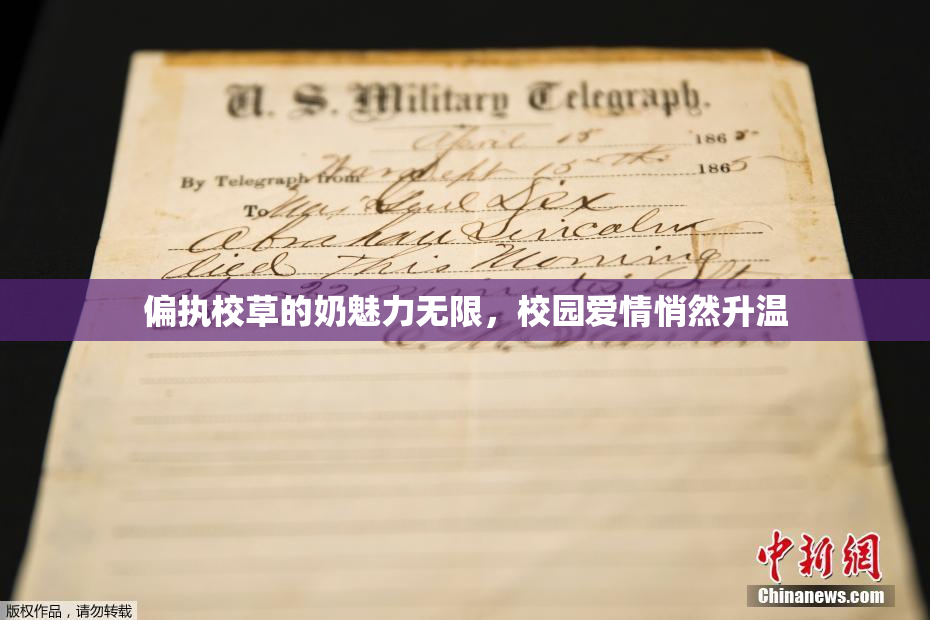 U. S. Military Telegraph.
April 15 1865
By Telegraph from War Dept 15th 1865
To Maj Genl Dix
Abraham Lincoln
died This Morning
22 minutes after
偏执校草的奶魅力无限，校园爱情悄然升温
中新网
Chinanews.com
版权作品，请勿转载